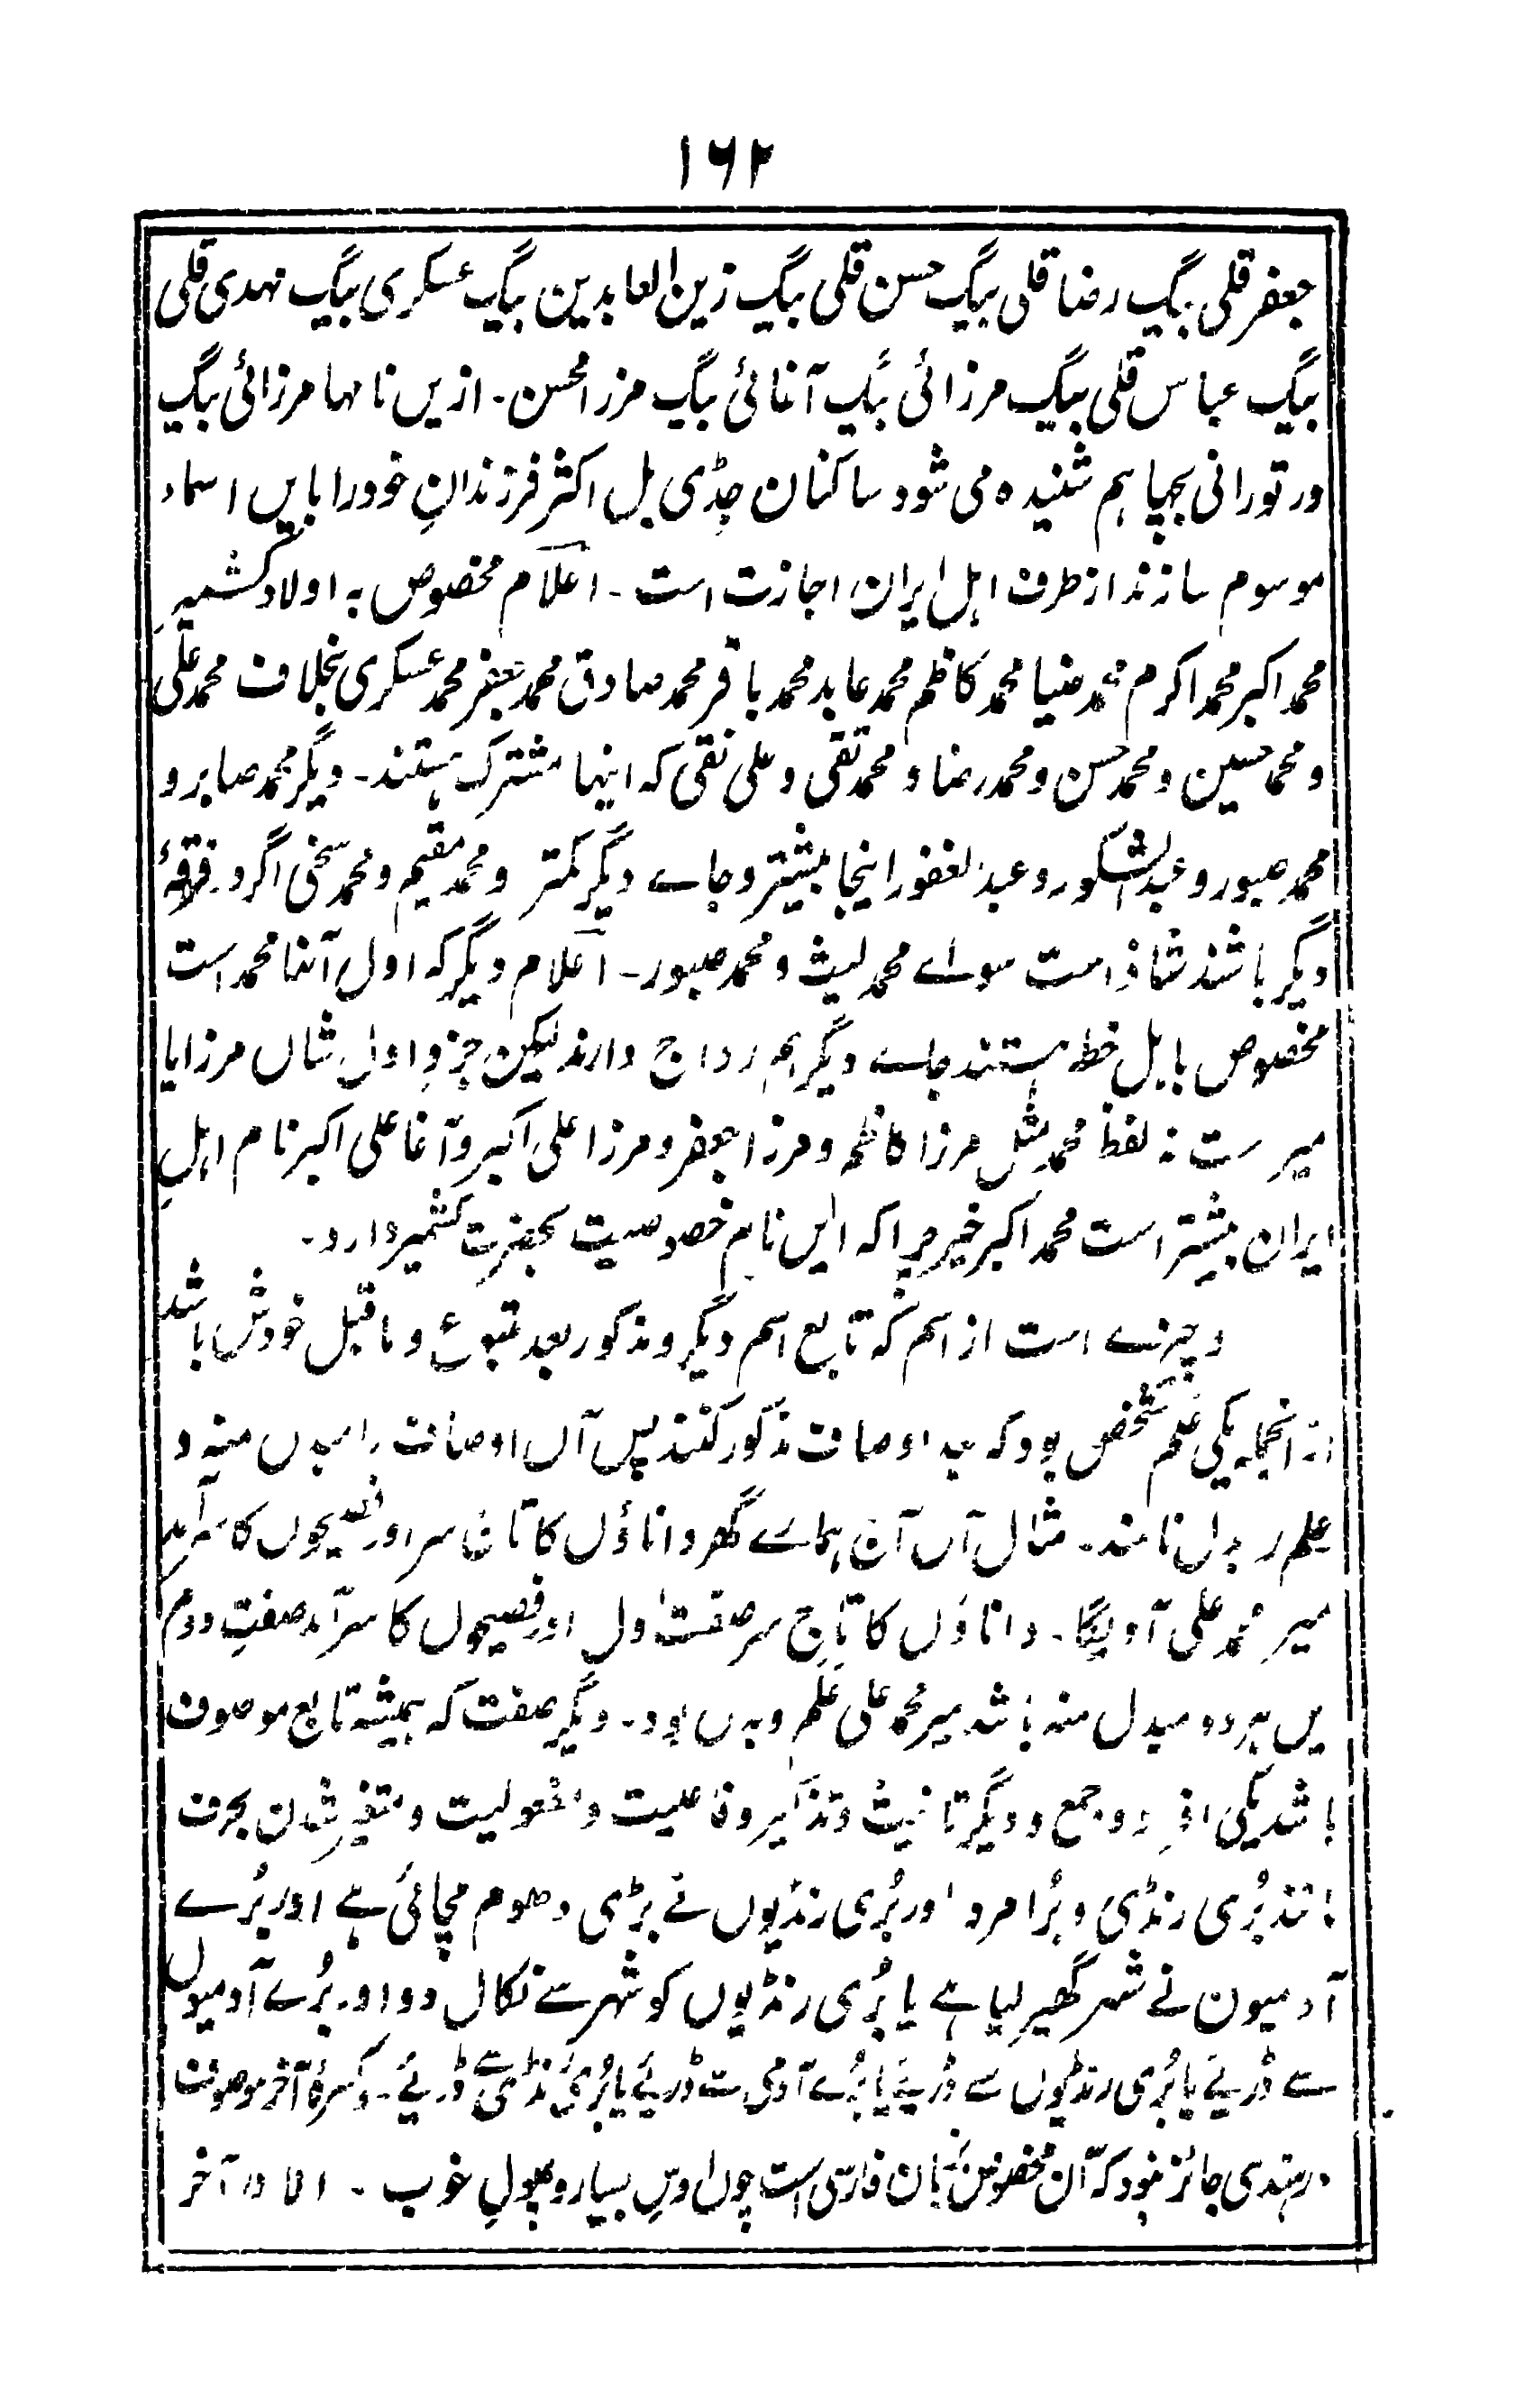 ۱۶۲
جعفر قلی بیگ رضا قلی بیگ حسن قلی بیگ زین العابدین بیگ عسکری بیگ مهدی قلی
بیگ عباس قلی بیگ مرزائی بیگ آغائی بیگ مرزا محسن۔ ازیں نامها مرزائی بیگ
در تورانی بچہا ہم شنیده می شود ساکنان چڈی بل اکثر فرزندانِ خود را بایں اسماء
موسوم سازند از طرف اہل ایران اجازت است۔ اَعلام مخصوص بہ اولاد کشمیر
محمد اکبر محمد اکرم محمد ضیا محمد کاظم محمد عابد محمد باقر محمد صادق محمد جعفر محمد عسکری بخلاف محمد علی
و محمد حسین و محمد حسن و محمد رضا و محمد تقی و علی نقی کہ اینہا مشترک ہستند۔ دیگر محمد صابر و
محمد صبور و عبدالشکور و عبدالغفور اینجا بیشتر و جاے دیگر کمتر و محمد مقیم و محمد سخی اگر در فرقۂ
دیگر باشند شاذ است سواے محمد لیث و محمد صبور۔ اَعلام دیگر کہ اول آنہا محمد است
مخصوص باہل خطہ ہستند جاے دیگر ہم رواج دارند لیکن جزوِ اول شاں مرزا یا
میر ست نہ لفظ محمد مثل مرزا کاظم و مرزا جعفر و مرزا علی اکبر و آغا علی اکبر نام اہلِ
ایران بیشتر است محمد اکبر خیر چرا کہ ایں نام خصوصیت بحضرت کشمیر دارد۔
و چیزے است از اسم کہ تابع اسم دیگر و مذکور بعد متبوع و ماقبل خودش باشد
ازانجملہ یکی عَلَم شخص بود کہ بعد اوصاف مذکور کنند پس آں اوصاف را مبدل منہ و
علم را بدل نامند۔ مثال آں آن ہماے گھر داناؤں کا تاج سر اور فصیحوں کا سرآمد
میر محمد علی آویگا۔ داناؤں کا تاج سر صفت اول اور فصیحوں کا سرآمد صفتِ دوم
پس ہر دو مبدل منہ باشد میر محمد علی عَلَم و بدل بود۔ دیگر صفت کہ ہمیشہ تابع موصوف
باشد یکی افراد و جمع و دیگر تانیث و تذکیر و فاعلیت و مفعولیت و متغیر شدن بحرف
مانند بُری رنڈی و بُرا مرد اور بُری رنڈیوں نے بڑی دھوم مچائی ہے اور بُرے
آدمیون نے شہر گھیر لیا ہے یا بُری رنڈیوں کو شہر سے نکال دو اور بُرے آدمیوں
سے ڈریئے یا بُری رنڈیوں سے ڈریئے یا بُرے آدمی سے ڈریئے یا بُری رنڈی سے ڈریئے۔ و کسرۂ آخر موصوف
در ہندی جائز نبود کہ آن مخصوص زبان فارسی است چوں اوسِ بسیار و پھولِ خوب۔ اما در آخر